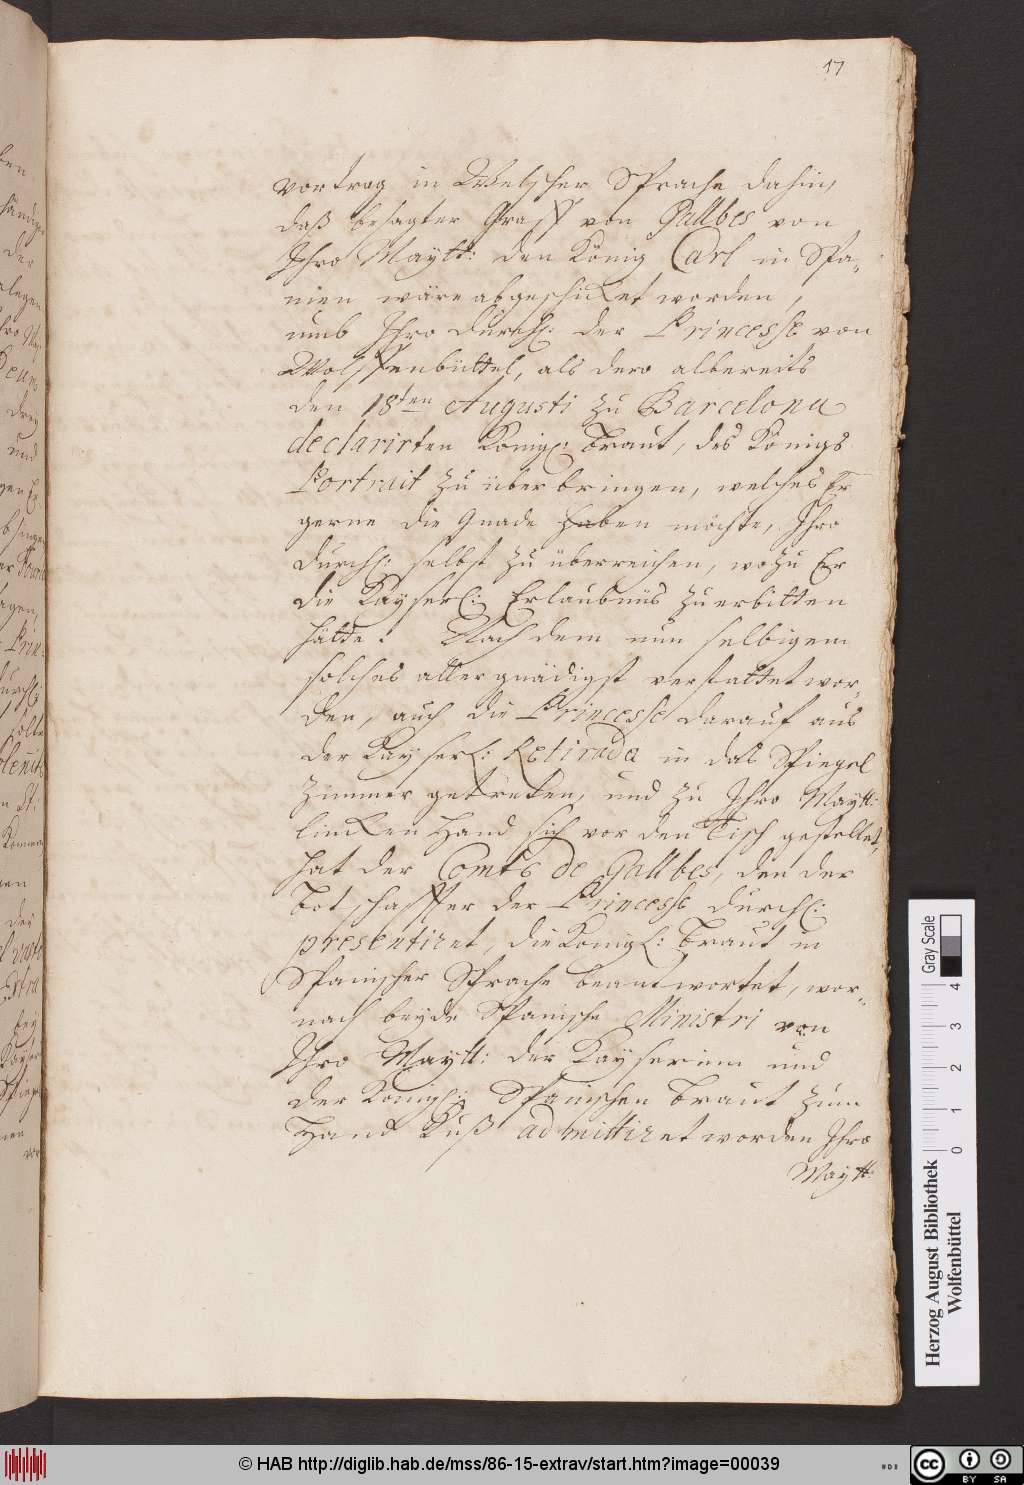 17
Vortrag in Welscher Sprache dahin,
daß besagter Graff von Gallbes von
Ihro Maytt: den König Carl in Spa-
nien wäre abgeschicket worden,
umb Ihro Durchl: der Princesse von
Wolffenbüttel, als dero albereits
den 18ten Augusti zu Barcelona
declarirten Königl: Braut, des Königs
Portrait zu überbringen, welches Er
gerne die Gnade haben möchte, Ihro
Durchl: selbst zu überreichen, wozu Er
die Kayserl: Erlaubnüs zu erbitten
hätte. Nach dem nun selbigem
solches allergnädigst verstattet wor-
den, auch die Princesse darauf aus
der Kayserl: Retirada in das Spiegel
Zimmer getreten, und zu Ihro Maytt:
lincken Hand sich vor den Tisch gestellet,
hat der Comte de Gallbes, den der
Botschaffter der Princesse Durchl:
presentiret, die Königl: Braut in
Spanischer Sprache beantwortet, wor-
nach beyde Spanische Ministri von
Ihro Maytt: der Kayserinn und
der Königl: Spanischen Braut zum
Hand Kuß admittiret worden Ihro
Maytt:
Herzog August Bibliothek
Wolfenbüttel
0 1 2 3 4
Gray Scale
© HAB http://diglib.hab.de/mss/86-15-extrav/start.htm?image=00039
cc BY SA